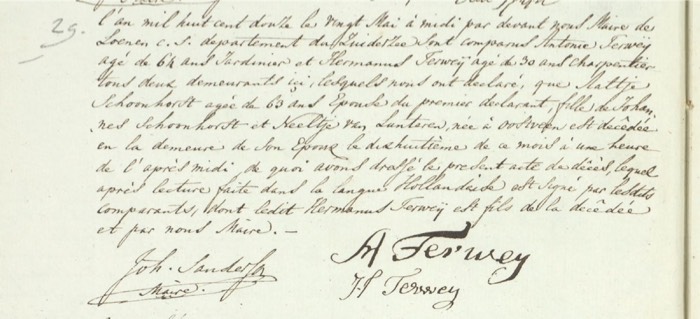 29.
L'an mil huit cent douze le vingt Mai à midi par devant nous Maire de
Loenen c.s. departement du Zuiderzee sont comparus Antonie Terweÿ
agé de 64 ans Jardinier et Hermanus Terweÿ agé de 30 ans charpentier
tous deux demeurants ici, lesquels nous ont declaré, que Mattje
Schoonhorst agée de 63 ans Epouse du premier declarant, fille de Johan-
nes Schoonhorst et Neeltje van Lunteren, née à Oostveen est décédée
en la demeure de son Epoux le dixhuitième de ce mois à une heure
de l'après midi, de quoi avons dressé le present acte de décès, lequel
après lecture faite dans la langue Hollandaise est signé par lesdits
comparants, dont ledit Hermanus Terweÿ est fils de la décédée
et par nous Maire. —
Joh. Sanderson
Maire.
A Terwey
H Terwey